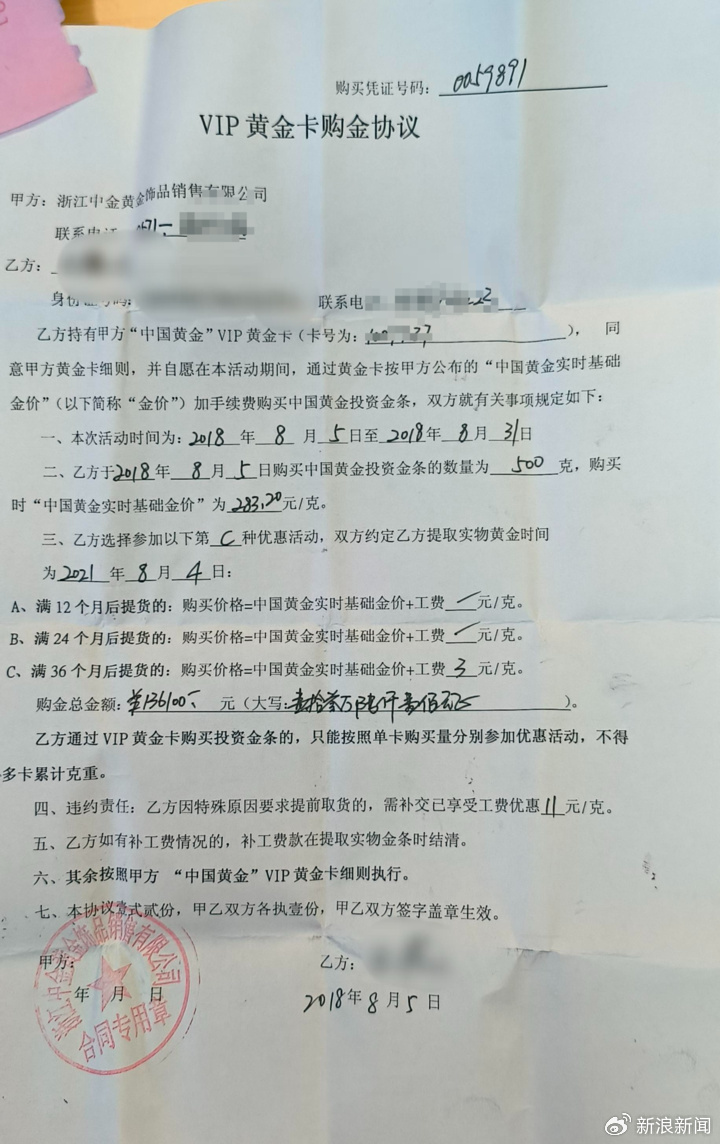 购买凭证号码：0059891
VIP 黄金卡购金协议
甲方：浙江中金黄金饰品销售有限公司
联系电话：0571-
乙方：
身份证号码： 联系电
乙方持有甲方“中国黄金”VIP 黄金卡（卡号为： ），同
意甲方黄金卡细则，并自愿在本活动期间，通过黄金卡按甲方公布的“中国黄金实时基础
金价”（以下简称“金价”）加手续费购买中国黄金投资金条，双方就有关事项规定如下：
一、本次活动时间为：2018 年 8 月 5 日至 2018 年 8 月 31 日
二、乙方于 2018 年 8 月 5 日购买中国黄金投资金条的数量为 500 克，购买
时“中国黄金实时基础金价”为 283.20 元/克。
三、乙方选择参加以下第 C 种优惠活动，双方约定乙方提取实物黄金时间
为 2021 年 8 月 4 日：
A、满 12 个月后提货的：购买价格=中国黄金实时基础金价+工费 / 元/克。
B、满 24 个月后提货的：购买价格=中国黄金实时基础金价+工费 / 元/克。
C、满 36 个月后提货的：购买价格=中国黄金实时基础金价+工费 3 元/克。
购金总金额： 元（大写： ）。
乙方通过 VIP 黄金卡购买投资金条的，只能按照单卡购买量分别参加优惠活动，不得
多卡累计克重。
四、违约责任：乙方因特殊原因要求提前取货的，需补交已享受工费优惠 11 元/克。
五、乙方如有补工费情况的，补工费款在提取实物金条时结清。
六、其余按照甲方 “中国黄金”VIP 黄金卡细则执行。
七、本协议壹式贰份，甲乙双方各执壹份，甲乙双方签字盖章生效。
甲方： 乙方：
年 月 日 2018 年 8 月 5 日
浙江中金黄金饰品销售有限公司
合同专用章
新浪新闻